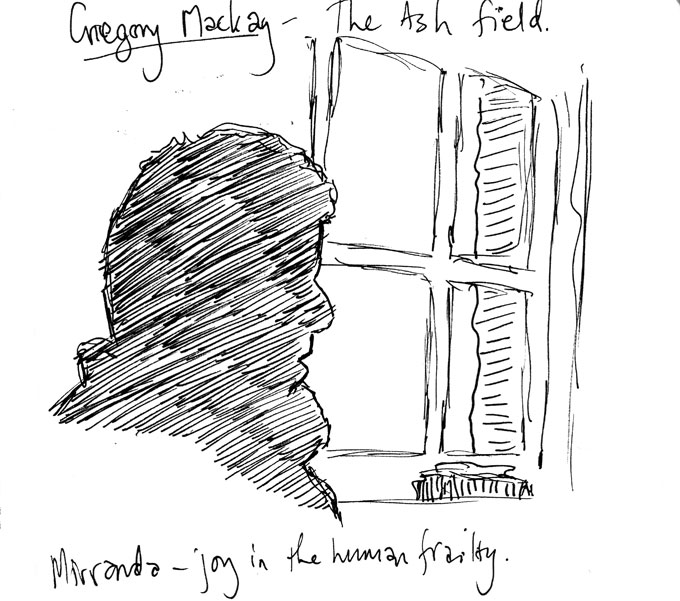 Gregory Mackay - The Ash field.
Mirranda - joy in the human frailty.